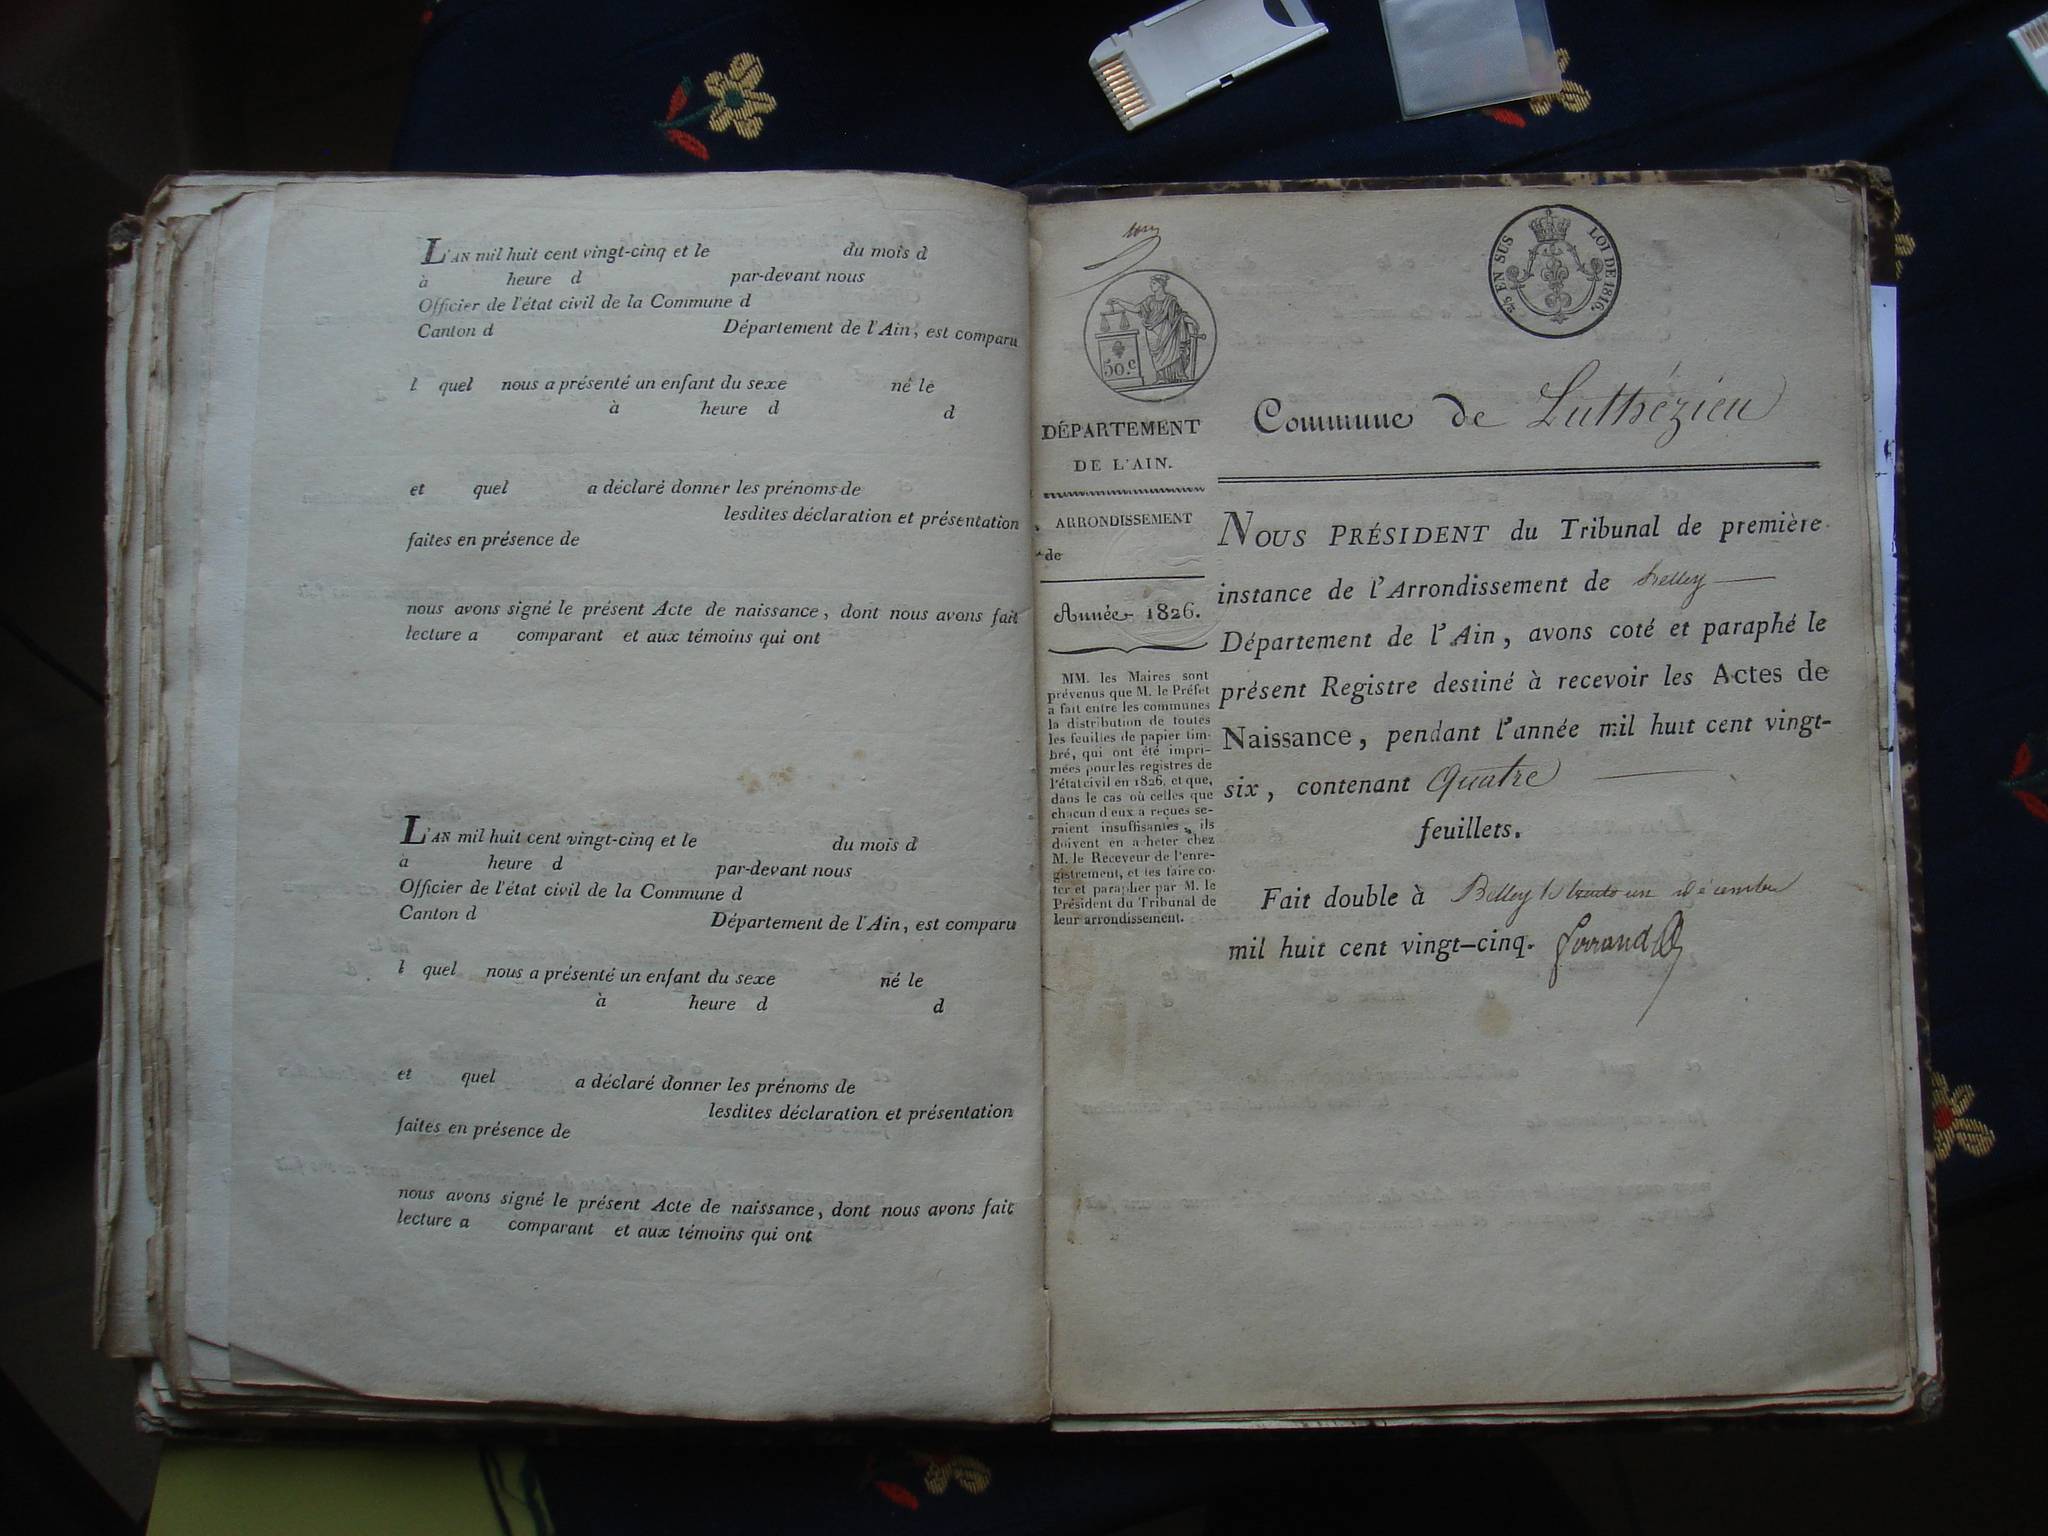 L'AN mil huit cent vingt-cinq et le du mois d
à heure d par-devant nous
Officier de l'état civil de la Commune d
Canton d Département de l'Ain, est comparu
l quel nous a présenté un enfant du sexe né le
à heure d d
et quel a déclaré donner les prénoms de
lesdites déclaration et présentation
faites en présence de
nous avons signé le présent Acte de naissance, dont nous avons fait
lecture a comparant et aux témoins qui ont
L'AN mil huit cent vingt-cinq et le du mois d
à heure d par-devant nous
Officier de l'état civil de la Commune d
Canton d Département de l'Ain, est comparu
l quel nous a présenté un enfant du sexe né le
à heure d d
et quel a déclaré donner les prénoms de
lesdites déclaration et présentation
faites en présence de
nous avons signé le présent Acte de naissance, dont nous avons fait
lecture a comparant et aux témoins qui ont
50.c
EN SUS LOI DE 1816.
DÉPARTEMENT
DE L'AIN.
ARRONDISSEMENT
de
Année 1826.
MM. les Maires sont
prévenus que M. le Préfet
a fait entre les communes
la distribution de toutes
les feuilles de papier tim-
bré, qui ont été impri-
mées pour les registres de
l'état civil en 1826, et que,
dans le cas où celles que
chacun d'eux a reçues se-
raient insuffisantes, ils
doivent en acheter chez
M. le Receveur de l'enre-
gistrement, et les faire co-
ter et parapher par M. le
Président du Tribunal de
leur arrondissement.
Commune de Luthézieu
NOUS PRÉSIDENT du Tribunal de première
instance de l'Arrondissement de Belley
Département de l'Ain, avons coté et paraphé le
présent Registre destiné à recevoir les Actes de
Naissance, pendant l'année mil huit cent vingt-
six, contenant Quatre
feuillets.
Fait double à Belley le trente un décembre
mil huit cent vingt-cinq.